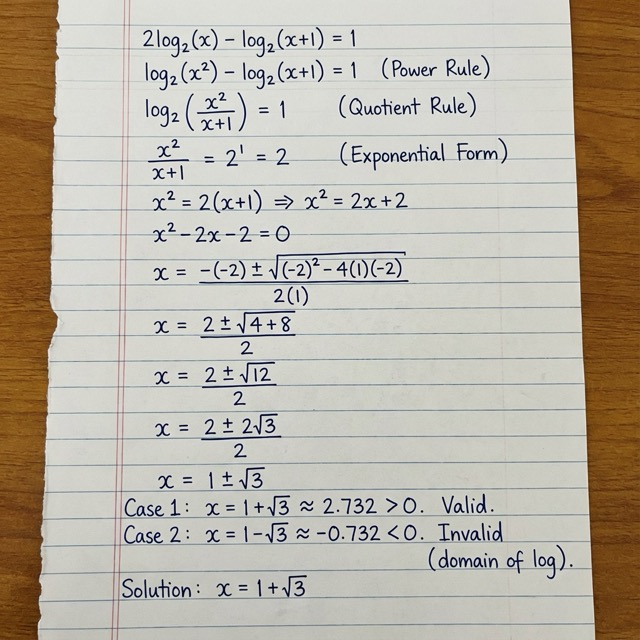 2log₂(x) − log₂(x+1) = 1
log₂(x²) − log₂(x+1) = 1 (Power Rule)
log₂(x²/(x+1)) = 1 (Quotient Rule)
x²/(x+1) = 2¹ = 2 (Exponential Form)
x² = 2(x+1) ⇒ x² = 2x+2
x² − 2x − 2 = 0
x = (−(−2) ± √((−2)² − 4(1)(−2)))/(2(1))
x = (2 ± √(4+8))/2
x = (2 ± √12)/2
x = (2 ± 2√3)/2
x = 1 ± √3
Case 1: x = 1+√3 ≈ 2.732 > 0. Valid.
Case 2: x = 1−√3 ≈ −0.732 < 0. Invalid
(domain of log).
Solution: x = 1+√3